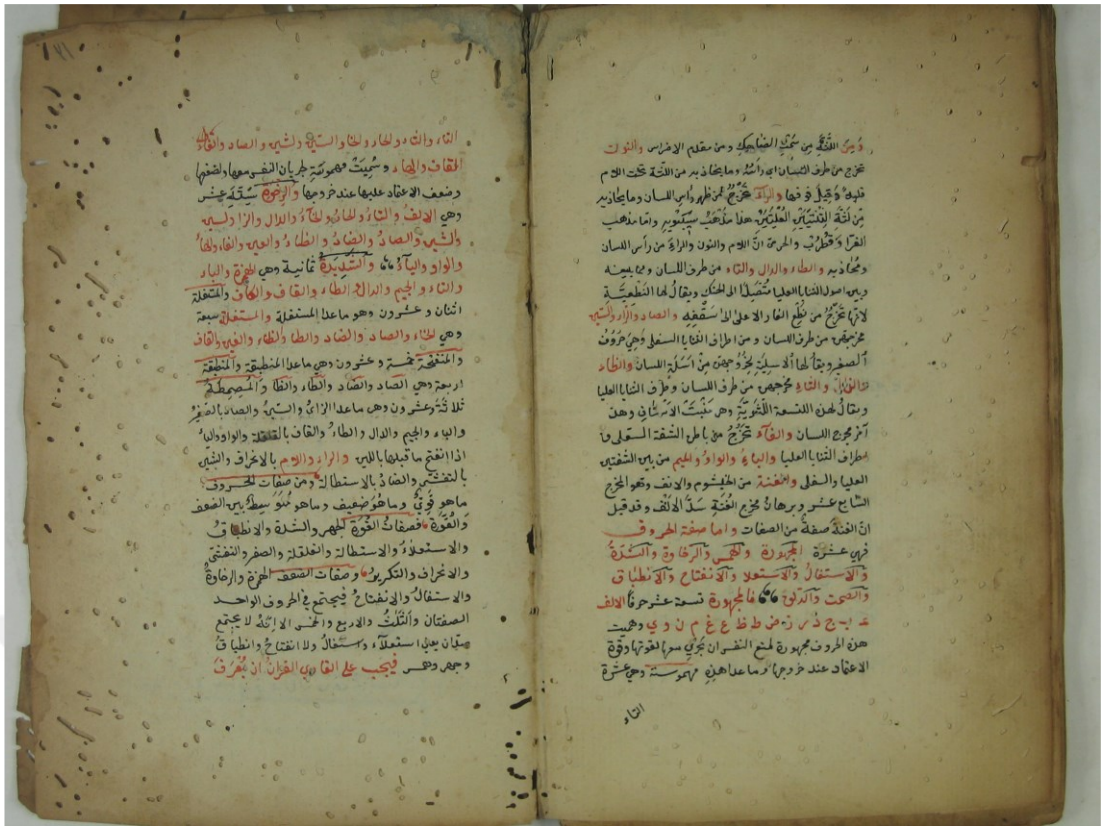 ومن اللثة من سمت الضاحك ومن مقدم الاضراس والنون
تخرج من طرف اللسان اى رأسه وما يحاذيه من اللثة تحت اللام
قليلا وقيل فوقها والراء تخرج من ظهر رأس اللسان وما يحاذيه
من لثة الثنيتين العليين هذا مذهب سيبويه واما مذهب
الفرا وقطرب والجرمى ان اللام والنون والراء من رأس اللسان
ومحاذيه والطاء والدال والتاء من طرف اللسان ومما بينه
وبين اصول الثنايا العليا متصلا الى الحنك ويقال لها النطعية
لانها تخرج من نطع الغار الاعلى اى سقفه والصاد والزاء والسين
مخرجهن من طرف اللسان ومن اطراف الثنايا السفلى وهى حروف
الصفير ويقال لها الاسلية لخروجهن من اسلة اللسان والظاء
والذال والثاء مخرجهن من طرف اللسان وطرف الثنايا العليا
ويقال لهذه التسعة اللثوية وهى منبت الاسنان وهذه
آخر مخرج اللسان والفاء تخرج من باطن الشفة السفلى و
اطراف الثنايا العليا والباء والواو والميم من بين الشفتين
العليا والسفلى والغنة من الخيشوم والانف وهو المخرج
السابع عشر وبرهان مخرج الغنة سد الانف وقد قيل
ان الغنة صفة من الصفات واما صفة الحروف
فهى عشرة المجهورة والهمس والرخاوة والشدة
والاستفال والاستعلا والانفتاح والانطباق
والصمت والذلق فالمجهورة تسعة عشر حرفا الالف
ء ب ج د ذ ر ز ض ط ظ ع غ م ن و ي وسميت
هذه الحروف مجهورة لمنع النفس ان يجرى معها لقوتها وقوة
الاعتماد عند خروجها وما عدا هذه مهموسة وهى عشرة
التاء
التاء والثاء والحاء والخاء والسين والشين والصاد والفاء
والقاف والهاء وسميت مهموسة لجريان النفس معها ولضعفها
وضعف الاعتماد عليها عند خروجها والرخوة ستة عشر
وهى الالف والثاء والحاء والخاء والذال والزا والسين
والشين والصاد والضاد والظاء والعين والغين والفاء والهاء
والواو والياء والشديدة ثمانية وهى الهمزة والباء
والتاء والجيم والدال والطاء والقاف والكاف والمستفلة
اثنان وعشرون وهو ما عدا المستعلية والمستعلية سبعة
وهى الخاء والصاد والضاد والطا والظاء والغين والقاف
والمنفتحة خمسة وعشرون وهى ما عدا المنطبقة والمنطبقة
اربعة وهى الصاد والضاد والطاء والظا والمصمتة
ثلاثة وعشرون وهى ما عدا الزائ والسين والصاد بالصفير
والباء والجيم والدال والطاء والقاف بالقلقلة والواو والياء
اذا انفتح ما قبلها باللين والراء واللام بالانحراف والشين
بالتفشى والضاد بالاستطالة ومن صفات الحروف
ما هو قوى وما هو ضعيف وما هو متوسط بين الضعف
والقوة فصفات القوة الجهر والشدة والانطباق
والاستعلاء والاستطالة والقلقلة والصفر والتفشى
والانحراف والتكرير وصفات الضعف الهمزة والرخاوة
والاستفال والانفتاح فيجتمع فى الحروف الواحد
الصفتان والثلث والاربع والخمس الا انه لا يجتمع
صفتان يعنى استعلاء واستفال ولا انفتاح وانطباق
وجهر وهمس فيجب على القارى القرآن ان يعرف